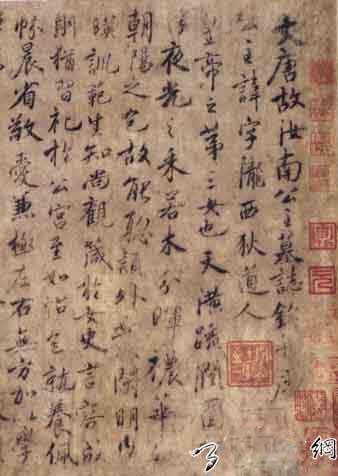 大唐故汝南公主墓誌銘并序
公主諱字隴西狄道人
皇帝之第三女也天潢疏潤圓
夜光之采若木分暉穠華
朝陽之色故能聰穎外發閑明內
暎訓範生知尚觀箴於女史言容成
則猶習礼於公宮至如怡色就養佩
帉晨省敬愛兼極左右無方加以學
網